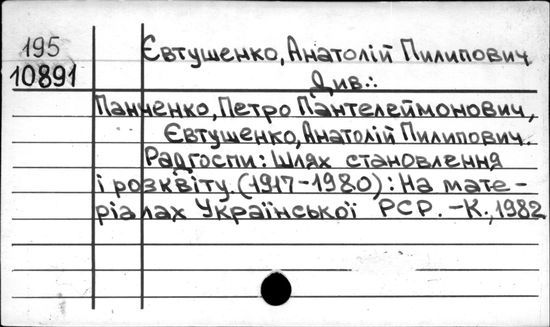 195 Євтушенко, Анатолій Пилипович
10891 Див.:
Панченко, Петро Пантелеймонович,
Євтушенко, Анатолій Пилипович.
Радгоспи: Шлях становлення
і розквіту. (1917-1980): На мате-
ріалах Української РСР. -К., 1982